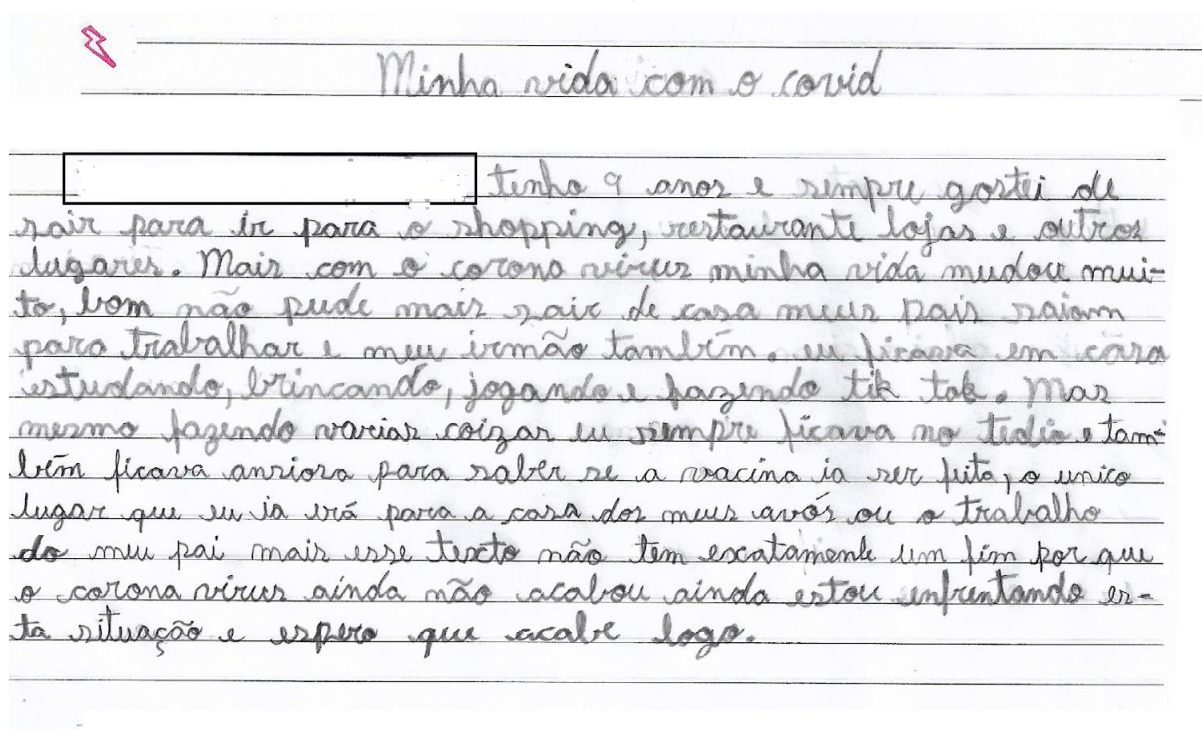 Minha vida com o covid
tenho 9 anos e sempre gostei de
sair para ir para o shopping, restaurante lojas e outros
lugares. Mais com o corono virus minha vida mudou mui-
to, bom não pude mais sair de casa meus pais saiam
para trabalhar e meu irmão também. eu ficava em casa
estudando, brincando, jogando e fazendo tik tok. Mas
mesmo fazendo varias coizas eu sempre ficava no tedio e tam-
bém ficava ansiosa para saber se a vacina ia ser feita, o unico
lugar que eu ia erá para a casa dos meus avós ou o trabalho
do meu pai mais esse texto não tem excatamente um fim por que
o corona virus ainda não acabou ainda estou enfrentando es-
ta situação e espero que acabe logo.